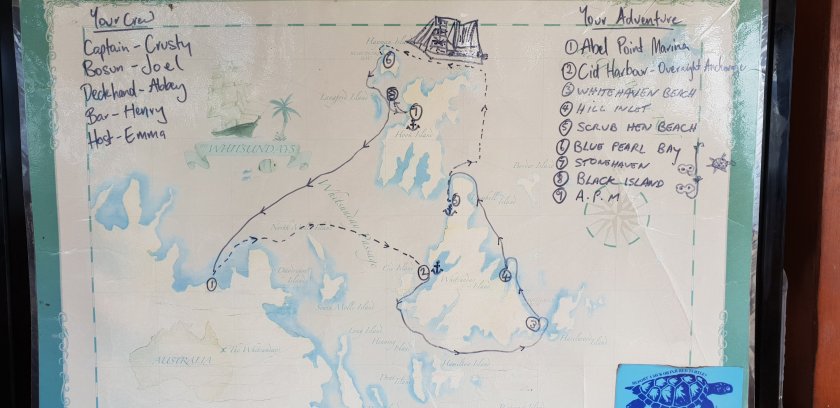 Your Crew
Captain - Crusty
Bosun - Joel
Deckhand - Abbey
Bar - Henry
Host - Emma
Your Adventure
① Abel Point Marina
② Cid Harbour - Overnight Anchorage
③ WHITEHAVEN BEACH
④ HILL INLET
⑤ SCRUB HEN BEACH
⑥ BLUE PEARL BAY
⑦ STONEHAVEN
⑧ BLACK ISLAND
⑨ A.P.M
Hayman Island
6
8
7
Langford Island
Hook Island
WHITSUNDAYS
Whitsunday Passage
Border Island
5
1
2
Cid Island
Whitsunday Island
4
3
Daydream Island
South Molle Island
Haslewood Island
AUSTRALIA
x The Whitsundays
Long Island
Hamilton Island